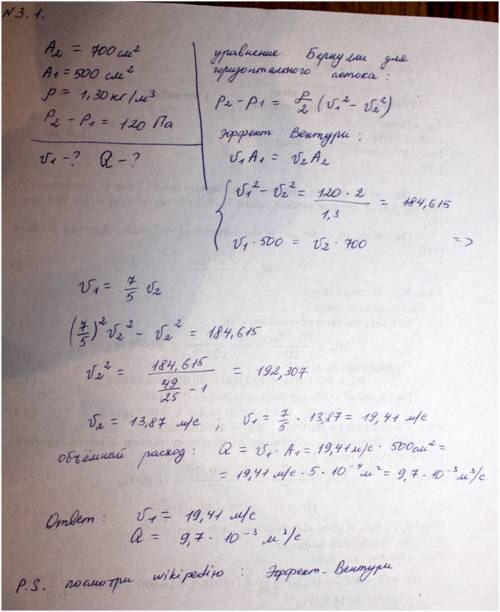 N 3.1.
A₂ = 700 см²
A₁ = 500 см²
ρ = 1,30 кг/м³
P₂ - P₁ = 120 Па
v₁ - ? Q - ?
уравнение Бернулли для
горизонтального потока:
P₂ - P₁ = ρ/2 (v₁² - v₂²)
Эффект Вентури:
v₁A₁ = v₂A₂
{ v₁² - v₂² = 120 · 2 / 1,3 = 184,615
v₁ · 500 = v₂ · 700 =>
v₁ = 7/5 v₂
(7/5)² v₂² - v₂² = 184,615
v₂² = 184,615 / (49/25 - 1) = 192,307
v₂ = 13,87 м/с ; v₁ = 7/5 · 13,87 = 19,41 м/с
Объёмный расход: Q = v₁ · A₁ = 19,41 м/с · 500 см² =
= 19,41 м/с · 5 · 10⁻⁴ м² = 9,7 · 10⁻³ м³/с
Ответ: v₁ = 19,41 м/с
Q = 9,7 · 10⁻³ м³/с
P.S. посмотри wikipediю : Эффект-Вентури